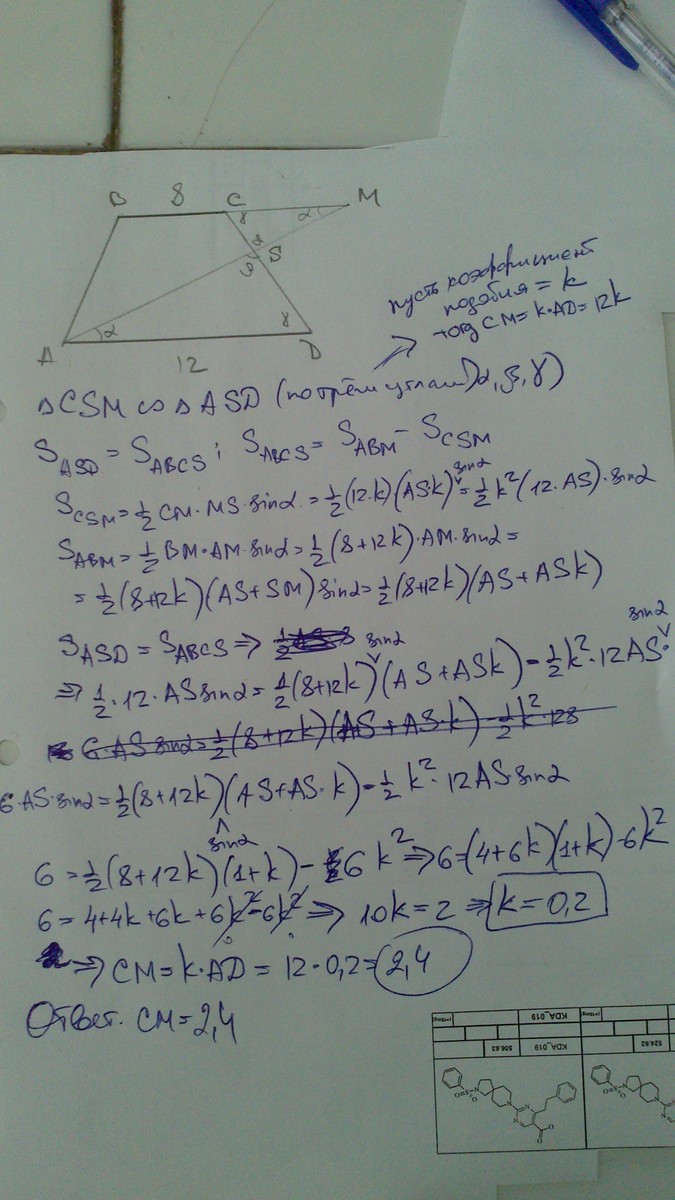 B 8 C M
γ α
β S
β
A α γ D
12
пусть коэффициент
подобия = k
тогд CM = k·AD = 12k
△CSM ∽ △ASD (по трём углам) α, β, γ)
S_ASD = S_ABCS; S_ABCS = S_ABM - S_CSM
S_CSM = 1/2 CM·MS·sinα = 1/2 (12·k)(AS·k) sinα = 1/2 k²(12·AS)·sinα
S_ABM = 1/2 BM·AM·sinα = 1/2 (8+12k)·AM·sinα =
= 1/2 (8+12k)(AS+SM) sinα = 1/2 (8+12k)(AS+ASk)
S_ASD = S_ABCS ⇒
⇒ 1/2·12·AS sinα = 1/2 (8+12k) sinα (AS+ASk) - 1/2 k²·12AS· sinα
6·AS sinα = 1/2 (8+12k)(AS+AS·k) - 1/2 k²·128
6·AS·sinα = 1/2 (8+12k) sinα (AS+AS·k) - 1/2 k²·12AS·sinα
6 = 1/2 (8+12k)(1+k) - 6k² ⇒ 6 = (4+6k)(1+k) - 6k²
6 = 4+4k+6k+6k²-6k² ⇒ 10k = 2 ⇒ k = 0,2
⇒ CM = k·AD = 12·0,2 = 2,4
Ответ. CM = 2,4
KDA_019
506.63 KDA_019 524.62